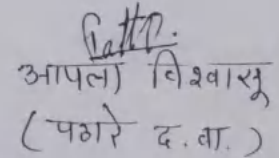 आपला विश्वासू
(पगारे द. वा.)